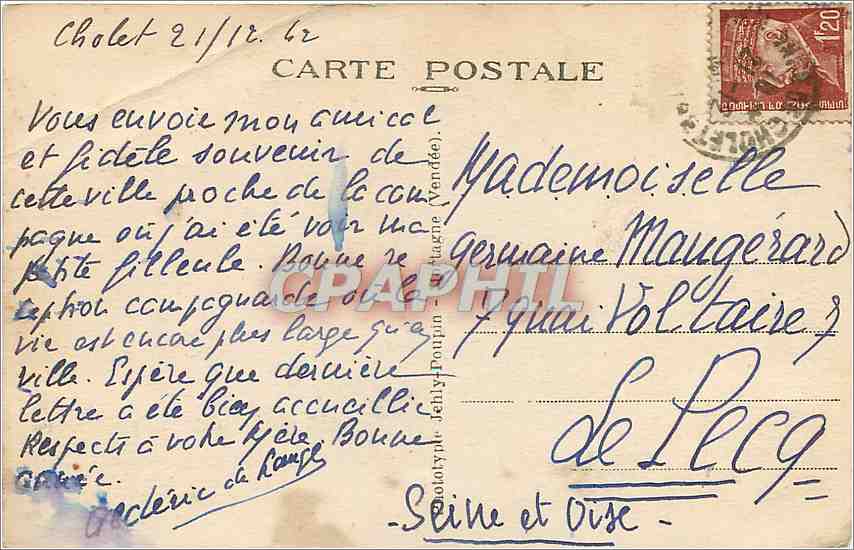 Cholet 21/12.42
CARTE POSTALE
1.20
CHOLET
Vous envoie mon amical
et fidèle souvenir de
cette ville proche de la cam
pagne où j'ai été voir ma
petite filleule. Bonne ré
ception campagnarde où la
vie est encore plus large qu'en
ville. Espère que dernière
lettre a été bien accueillie
Respects à votre Mère. Bonne
année.
Frédéric de
Phototypie Jehly-Poupin - Mortagne (Vendée).
CPAPHIL
Mademoiselle
Germaine Maugérard
7 quai Voltaire 7
Le Pecq
- Seine et Oise -